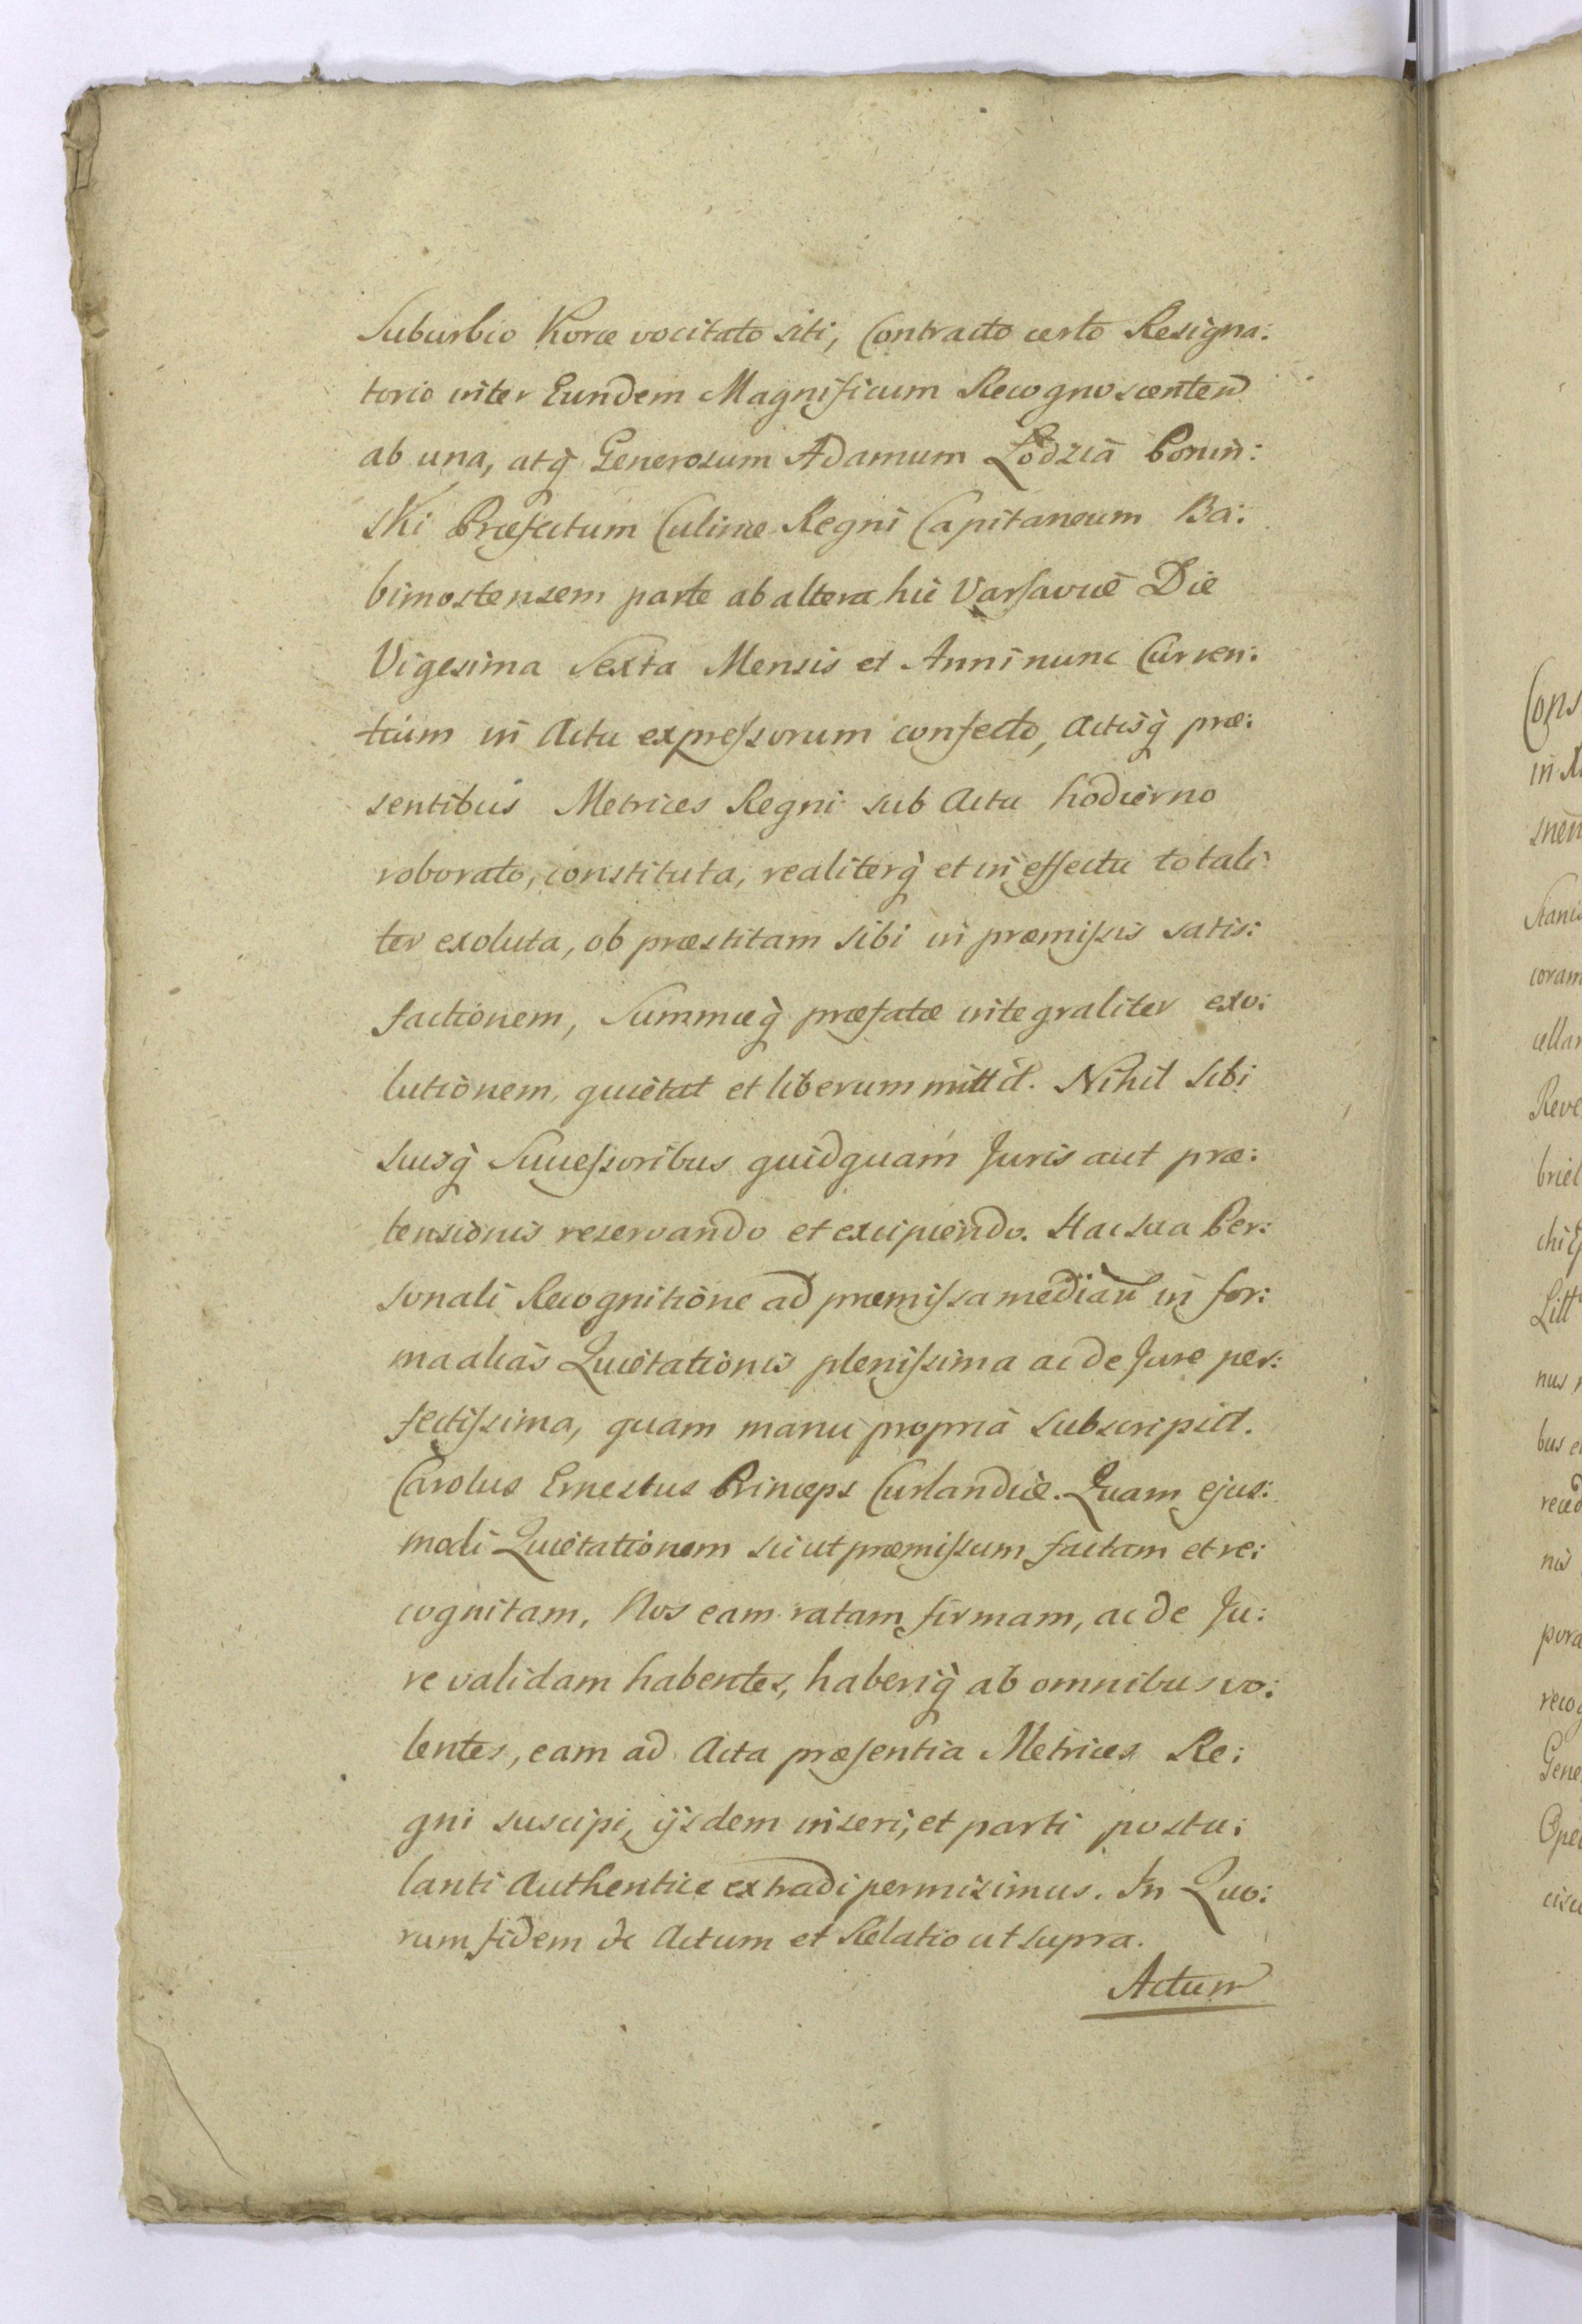 Suburbio Koræ vocitato siti, Contracto certo Resigna:
torio inter Eundem Magnificum Recognoscentem
ab una, atq̀ Generosum Adamum Łodzia Ponin:
ski Præfectum Culinæ Regni Capitaneum Ba:
bimostensem parte ab altera hic Varsaviæ Die
Vigesima Sexta Mensis et Anni nunc Curren:
tium in Actu expressorum confecto, Actisq̀ præ:
sentibus Metrices Regni sub Actu hodierno
roborato, constituta, realiterq̀ et in effectu totali
ter exoluta, ob præstitam sibi in præmissis satis:
factionem, Summæq̀ præfatæ integraliter exo:
lutionem, quietat et liberum mittit. Nihil Sibi
suisq̀ Successoribus quidquam Juris aut præ:
tensionis reservando et excipiendo. Hac sua Per:
sonali Recognitione ad præmissa mediañ in for:
ma alias Quietationis plenissima ac de Jure per:
fectissima, quam manu propria subscripsit.
Carolus Ernestus Princeps Curlandiæ. Quam ejus:
modi Quietationem sicut præmissum factam et re:
cognitam, Nos eam ratam firmam, ac de Ju:
re validam habentes, haberiq̀ ab omnibus vo:
lentes, eam ad Acta præsentia Metrices Re:
gni suscipi, ijsdem inseri, et parti postu:
lanti Authentice extradi permisimus. In Quo:
rum fidem &c Actum et Relatio ut supra.
Actum